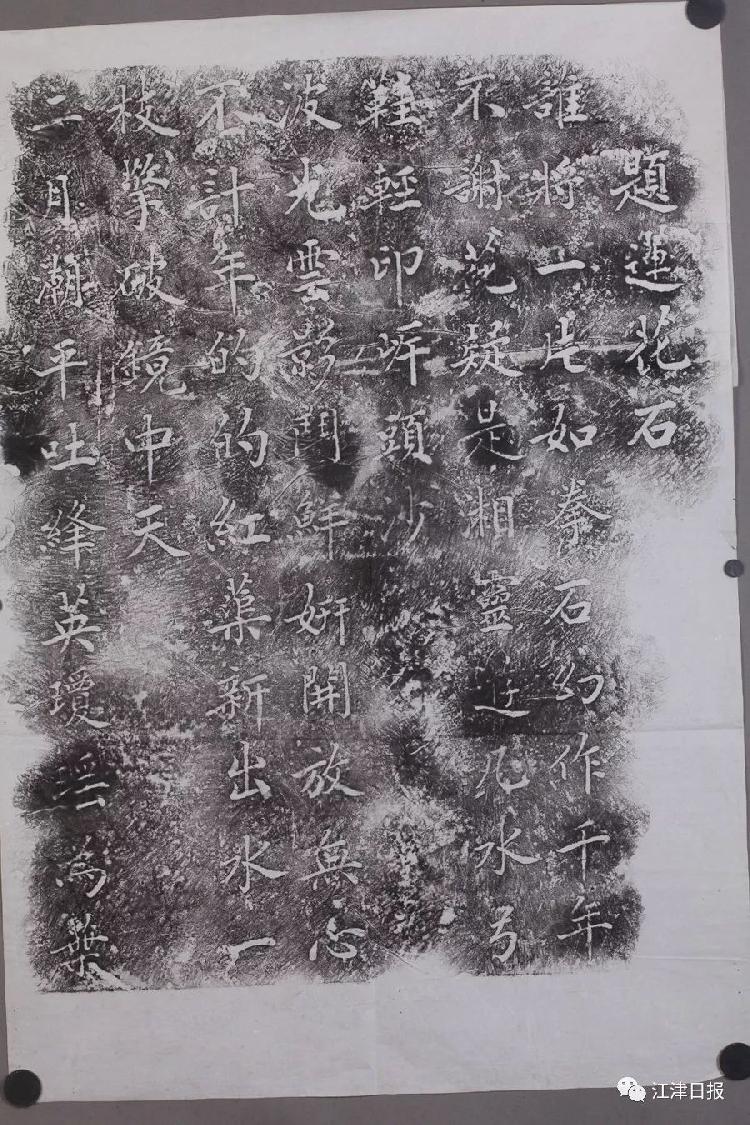 題蓮花石
誰將一片如拳石幻作千年
不謝花疑是湘靈遊几水弓
鞋輕印泝頭沙
波光雲影鬥鮮妍開放無心
不計年的的紅蕖新出水一
枝擎破鏡中天
二月潮平吐絳英瓊瑤為葉
江津日报